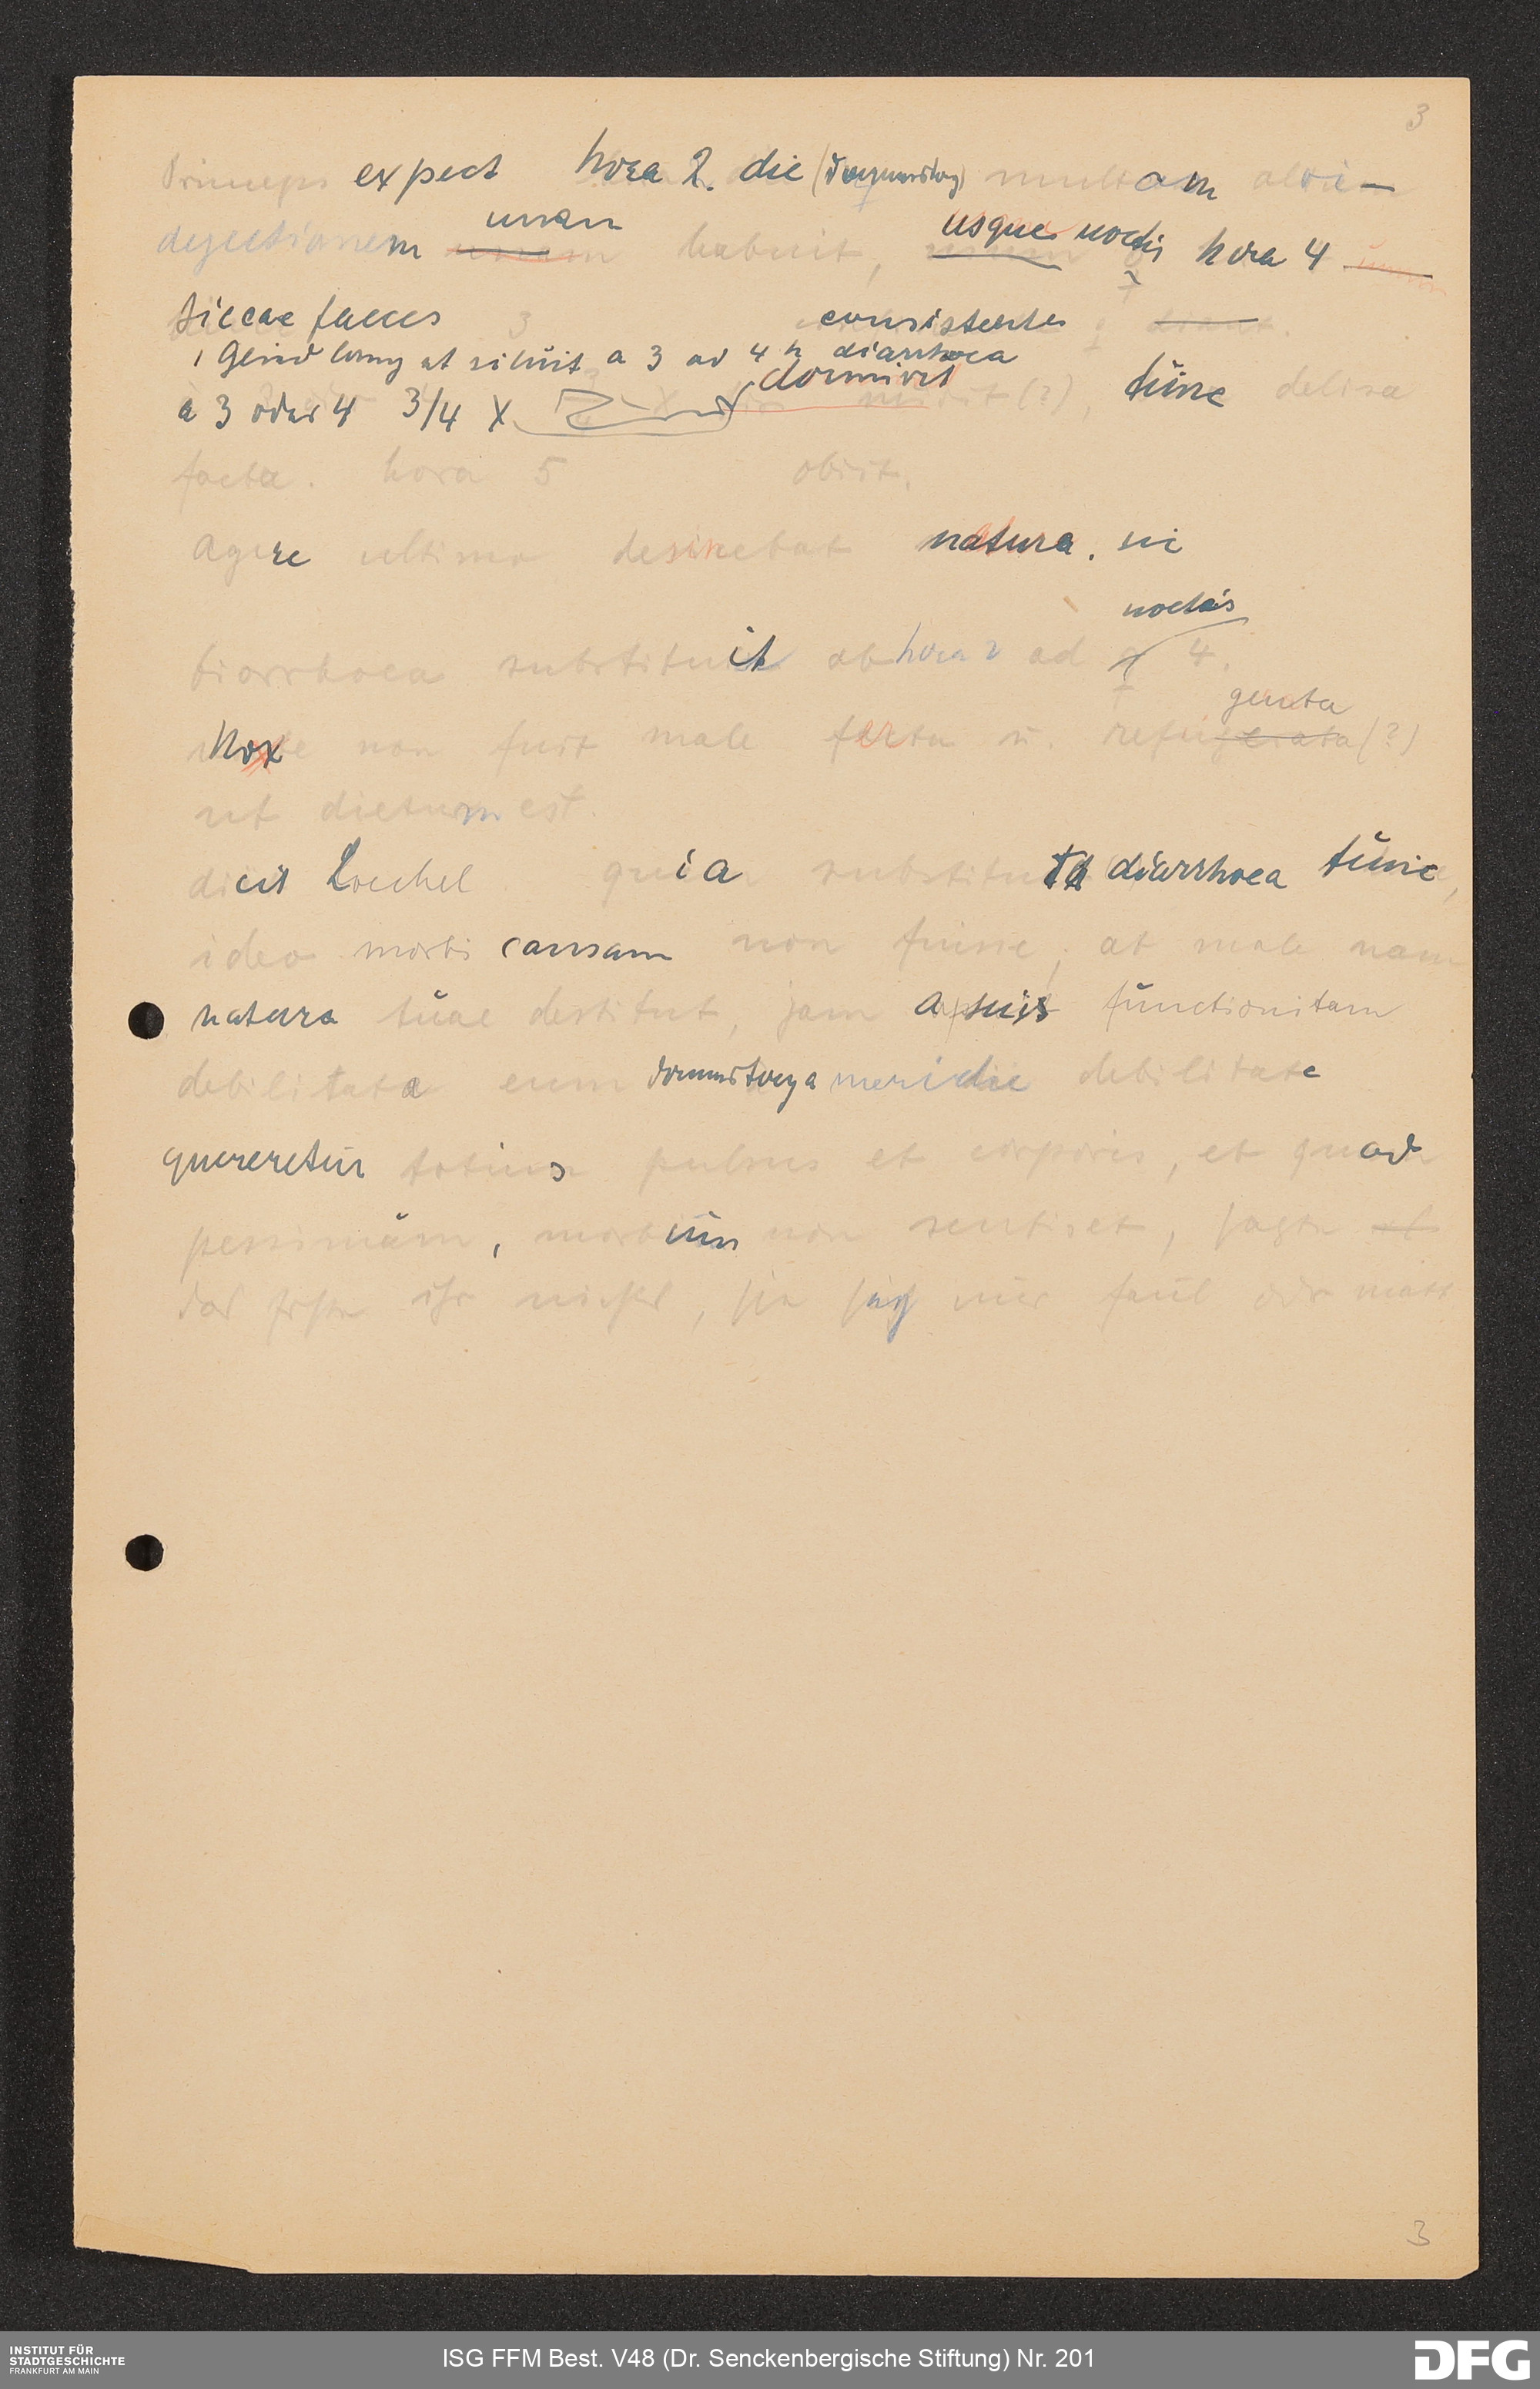 3
Princeps expect hora 2. die (Donnerstag) multam alvi-
dejectionem unam habuit, usque noctis hora 4
siccae faeces 3 consistentes
1 stund lang at siluit a 3 ad 4 h diarrhoea
a 3 oder 4 3/4 X dormivit (?), tunc
facta. hora 5 obiit.
agere ultimo desinebat natura. sic
noctis
diarrhoea substituit ab hora 2 ad 4.
genta
Nox non fuit male ferta (?)
ut dictum est.
dicit Loechel. quia substituta diarrhoea tunc,
ideo morbi causam non fuisse, at male nam
natura suae destitut, jam a suis functionitam
debilitata cum Donnerstag a meridie debilitate
quereretur totius pulsus et corporis, et quod
pessimum, morbum non sentiret, sagte
das fehle ihr nichts, sie sey nur faul oder matt
3
INSTITUT FÜR
STADTGESCHICHTE
FRANKFURT AM MAIN
ISG FFM Best. V48 (Dr. Senckenbergische Stiftung) Nr. 201
DFG